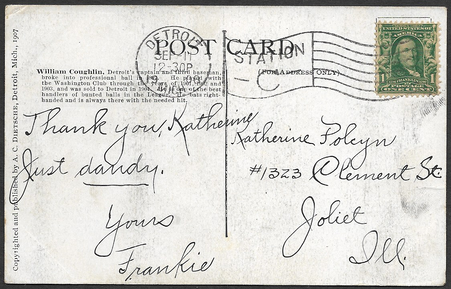 POST CARD
(FOR ADDRESS ONLY)
DETROIT
SEP 11
12-30P
STATION
C
William Coughlin, Detroit's captain and third baseman,
broke into professional ball in
the
Washington Club through the
and
1903, and was sold to Detroit in
the best
handlers of bunted balls in the League. He bats right-
handed and is always there with the needed hit.
Copyrighted and published by A. C. DIETSCHE, Detroit, Mich., 1907
Thank you, Katherine
Just dandy.
Yours
Frankie
Katherine
#1323 Clement St.
Joliet
Ill.